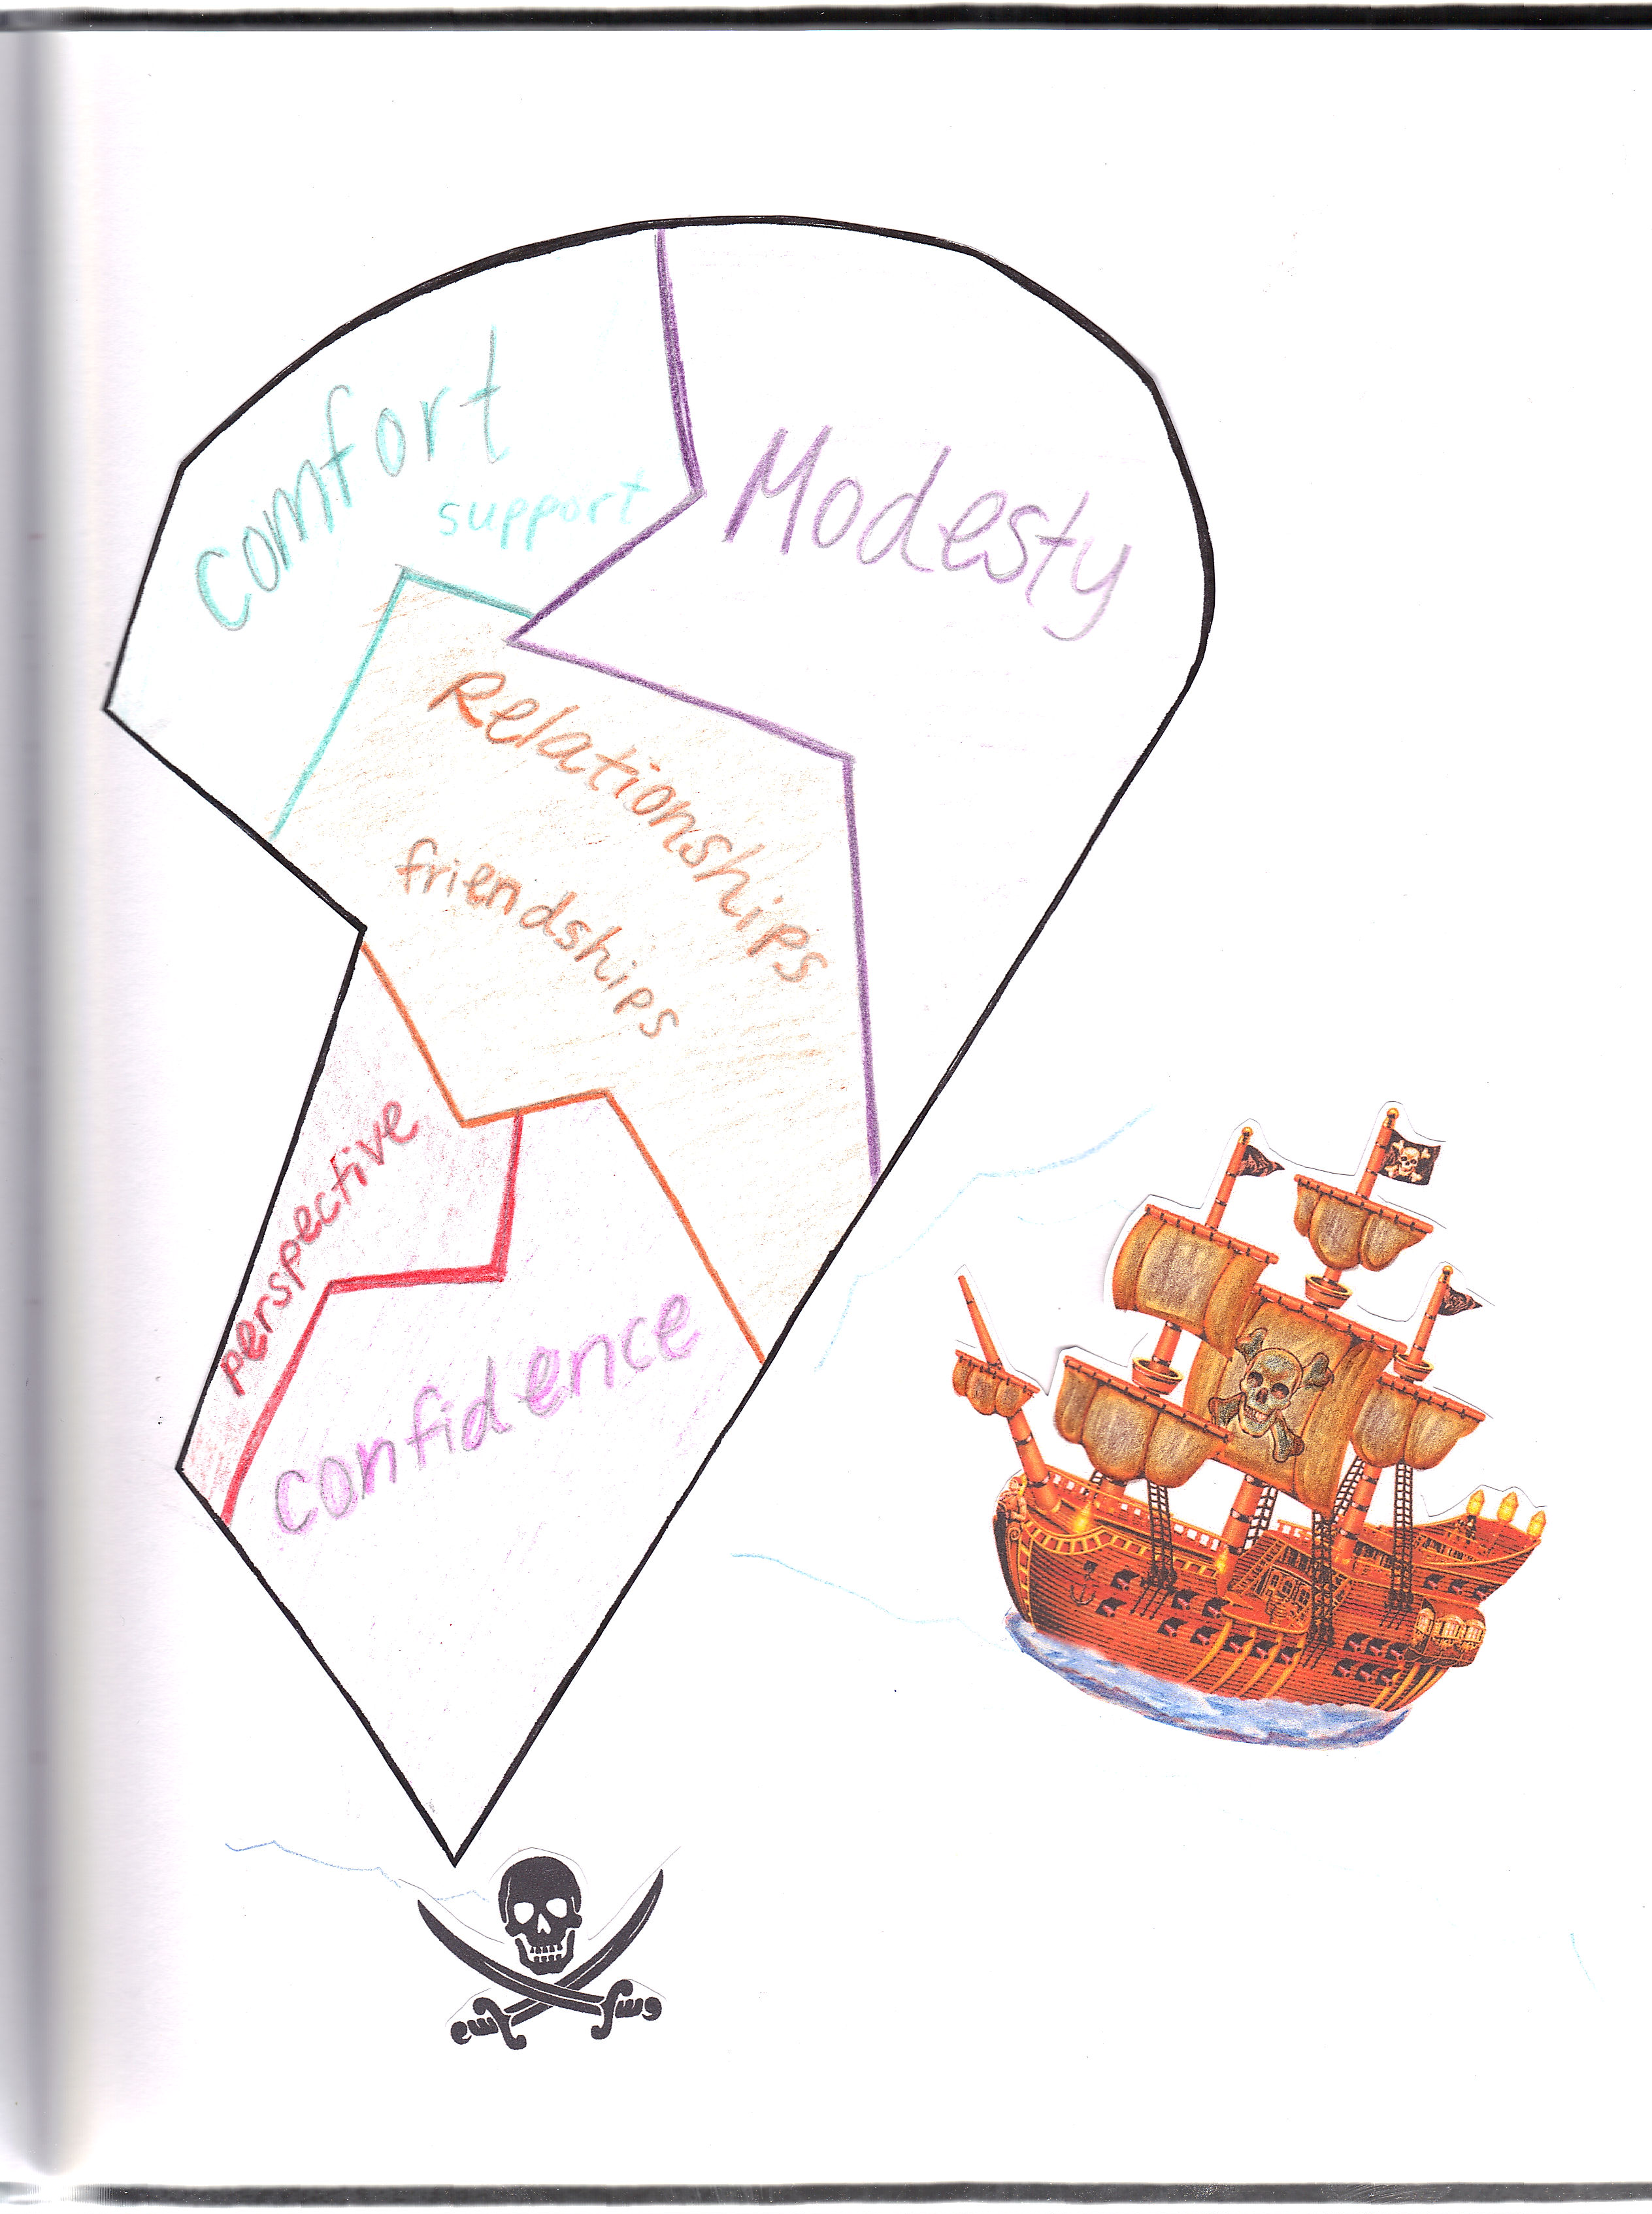 comfort
support
Modesty
Relationships
friendships
perspective
confidence